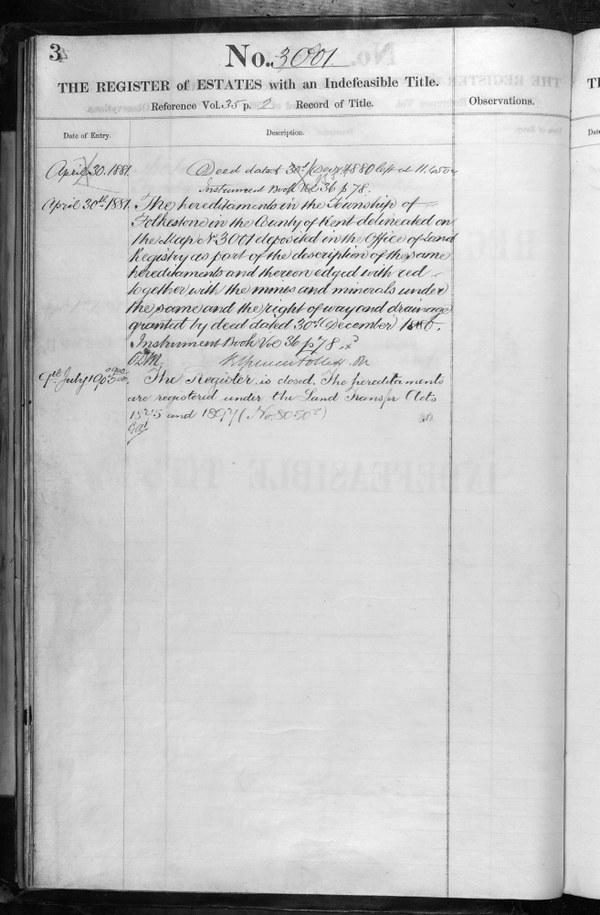 3
No. 3001
THE REGISTER of ESTATES with an Indefeasible Title.
Reference Vol. 35 p. 2 Record of Title.
Observations.
Date of Entry.
Description.
April 30. 1881
Deed dated 30th Decr 1880 left at 11.45
Instrument Book Vol 36 p 78.
April 30th 1881.
The hereditaments in the Township of
Folkestone in the County of Kent delineated on
the Map No 3001 deposited in the Office of Land
Registry as part of the description of the same
hereditaments and thereon edged with red
together with the mines and minerals under
the same and the right of way and drainage
granted by deed dated 30th December 1880.
Instrument Book Vol 36 p 78.
9th July 1903
The Register is closed. The hereditaments
are registered under the Land Transfer Acts
1875 and 1897 (No. 80502)